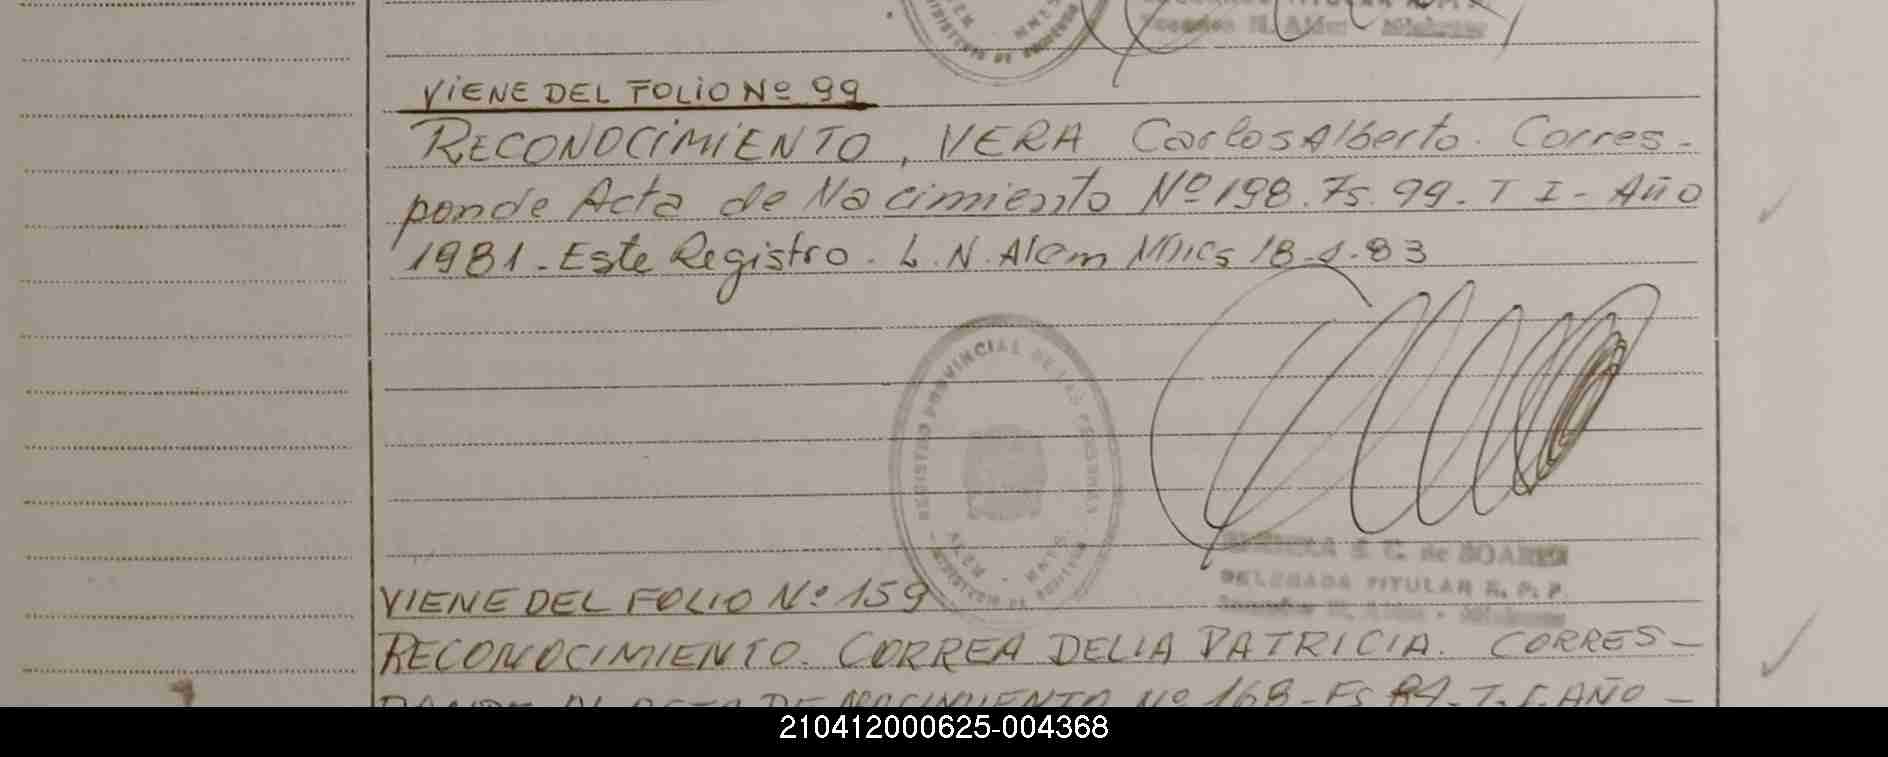 VIENE DEL FOLIO Nº 99
RECONOCIMIENTO, VERA Carlos Alberto. Corres-
ponde Acta de Nacimiento Nº 198. Fs. 99. T I - Año
1981. Este Registro. L. N. Alem Mnes 18-1-83
REGISTRO PROVINCIAL DE LAS PERSONAS
S. C. de SOARES
DELEGADA TITULAR R. P. P.
VIENE DEL FOLIO Nº 159
RECONOCIMIENTO. CORREA DELIA PATRICIA. CORRES-
PONDE AL ACTA DE NACIMIENTO Nº 168-Fs 84. T. I. AÑO -
210412000625-004368